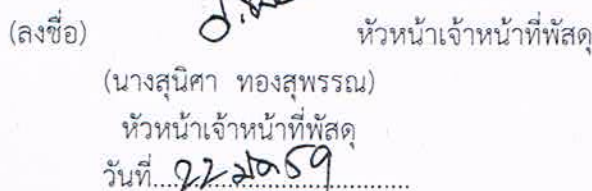 (ลงชื่อ) หัวหน้าเจ้าหน้าที่พัสดุ
(นางสุนิศา ทองสุพรรณ)
หัวหน้าเจ้าหน้าที่พัสดุ
วันที่ 22 มีค 59